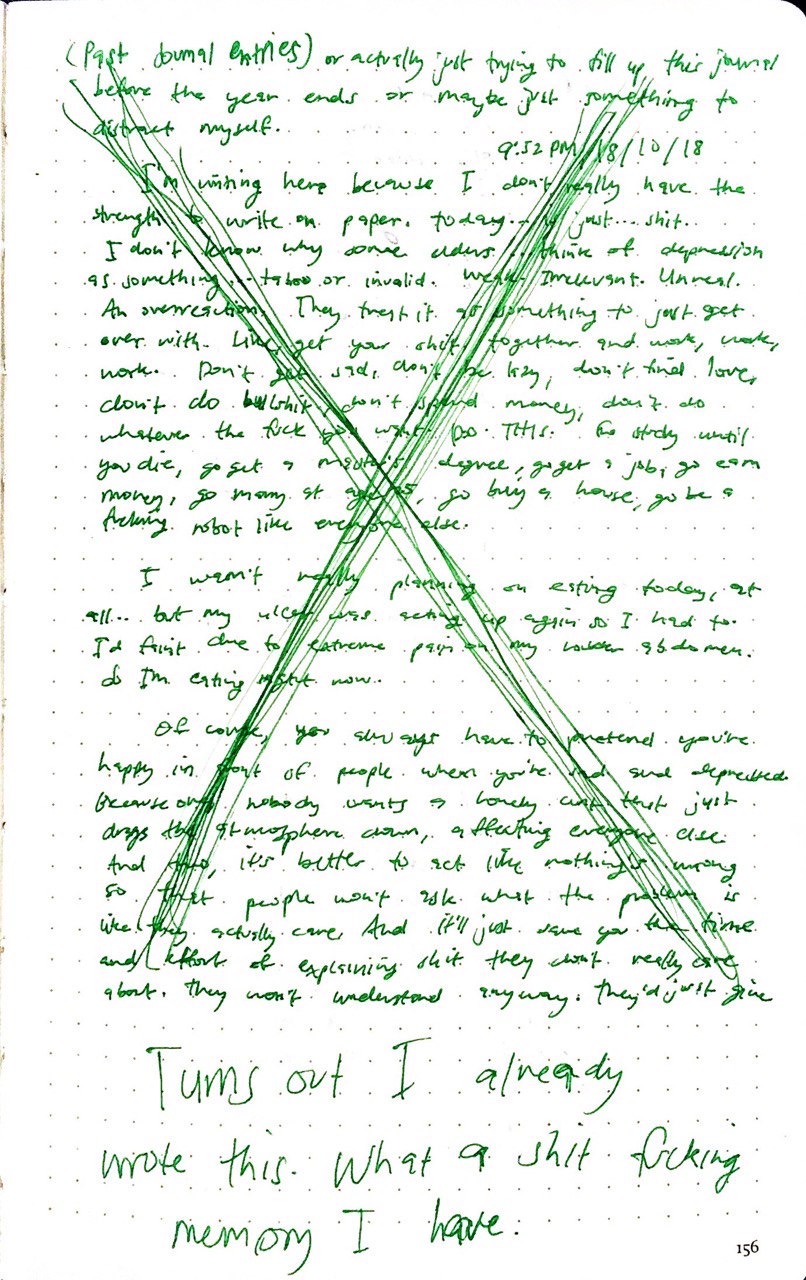 (Past Journal entries) or actually just trying to fill up this journal
before the year ends or maybe just something to
distract myself.
9:52 PM 18/10/18
I'm writing here because I don't really have the
strength to write on paper. today... is just... shit.
I don't know why some elders... think of depression
as something... taboo or invalid. Weak. Irrelevant. Unreal.
An overreaction. They treat it as something to just get
over with. Like, get your shit together and work, work,
work. Don't get sad, don't be lazy, don't find love,
don't do bullshit, don't spend money, don't do
whatever the fuck you want. Do THIS. Go study until
you die, go get a master's degree, go get a job, go earn
money, go marry at age, go buy a house, go be a
fucking robot like everyone else.
I wasn't really planning on eating today, at
all... but my ulcer was acting up again so I had to.
I'd faint due to extreme pain on my abdomen.
So I'm eating right now.
Of course, you always have to pretend you're
happy in front of people when you're sad and depressed
because nobody wants a lonely cunt that just
drags the atmosphere down, affecting everyone else.
And it's better to act like nothing's wrong
so that people won't ask what the problem is
like they actually care. And it'll just save you the time
and effort of explaining shit they don't really care
about. They won't understand anyway. They'd just give
Turns out I already
wrote this. What a shit fucking
memory I have.
156